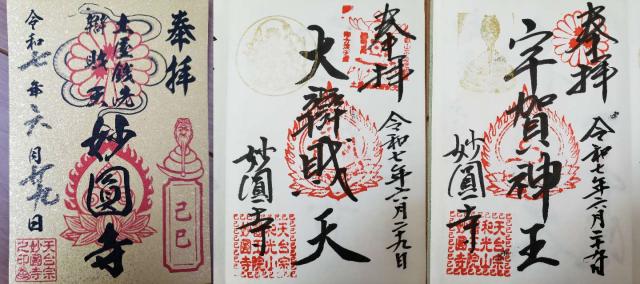 奉拝
土蔵銭洗
辯財天
妙圓寺
令和七年六月二十九日
己巳
天台宗
妙圓寺
之印
奉拝
大辯財天
令和七年六月二九日
妙圓寺
天台宗
和光山
院
妙圓寺
奉拝
宇賀神王
令和七年六月二十九日
妙圓寺
天台宗
和光山
院
妙圓寺